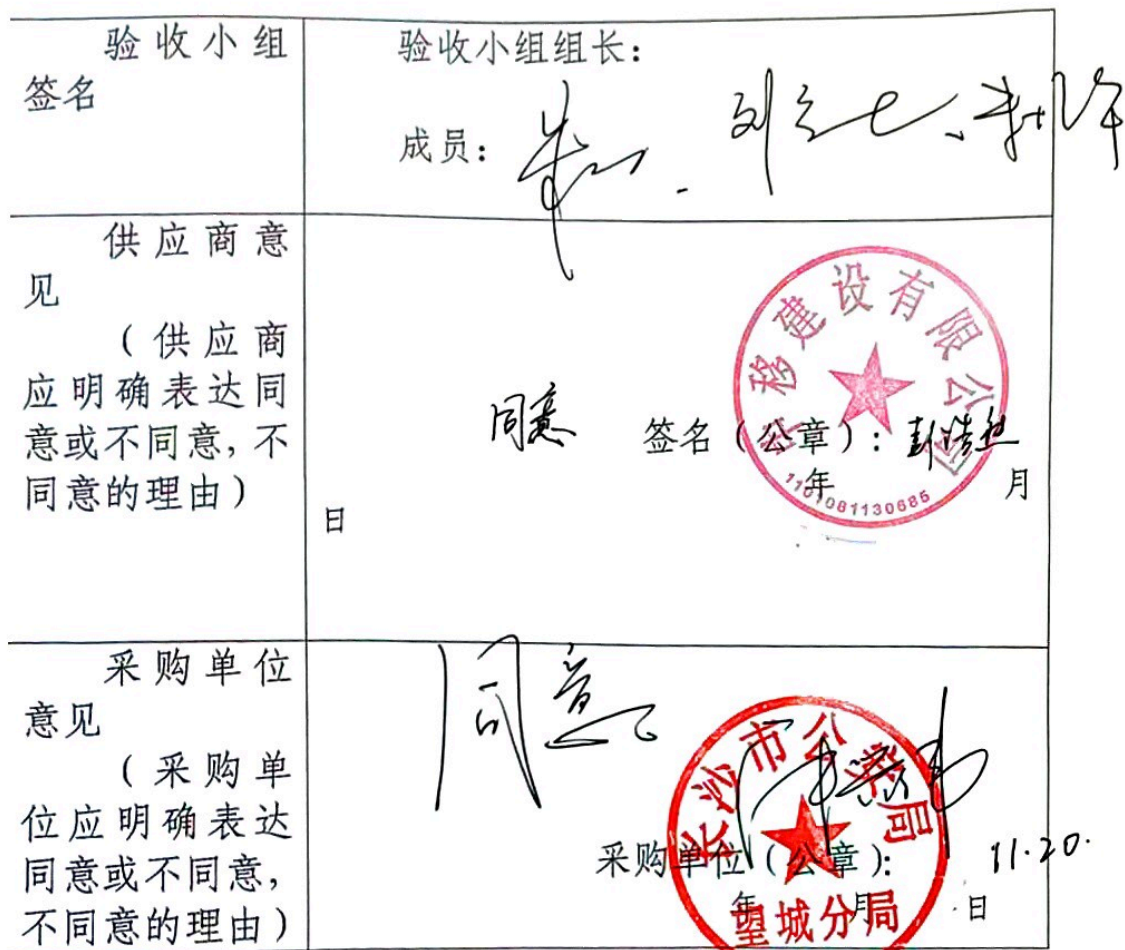 验收小组
签名
验收小组组长：
成员：
刘
供应商意
见
（供应商
应明确表达同
意或不同意，不
同意的理由）
同意 签名（公章）：彭浩
年 月
日
中移建设有限公司
1101081130685
采购单位
意见
（采购单
位应明确表达
同意或不同意，
不同意的理由）
同意
采购单位（公章）： 11.20.
年 月 日
长沙市公安局
望城分局